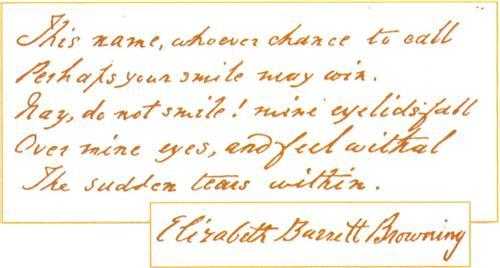 This name, whoever chance to call
Perhaps your smile may win.
Nay, do not smile! mine eyelids fall
Over mine eyes, and feel withal
The sudden tears within.
Elizabeth Barrett Browning